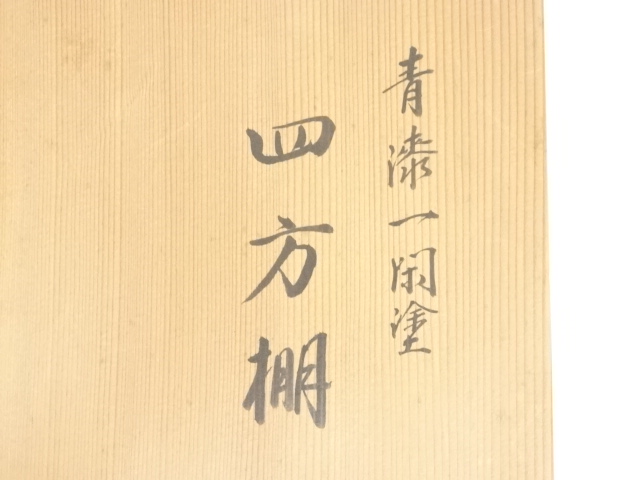 青漆一閑塗
四方棚